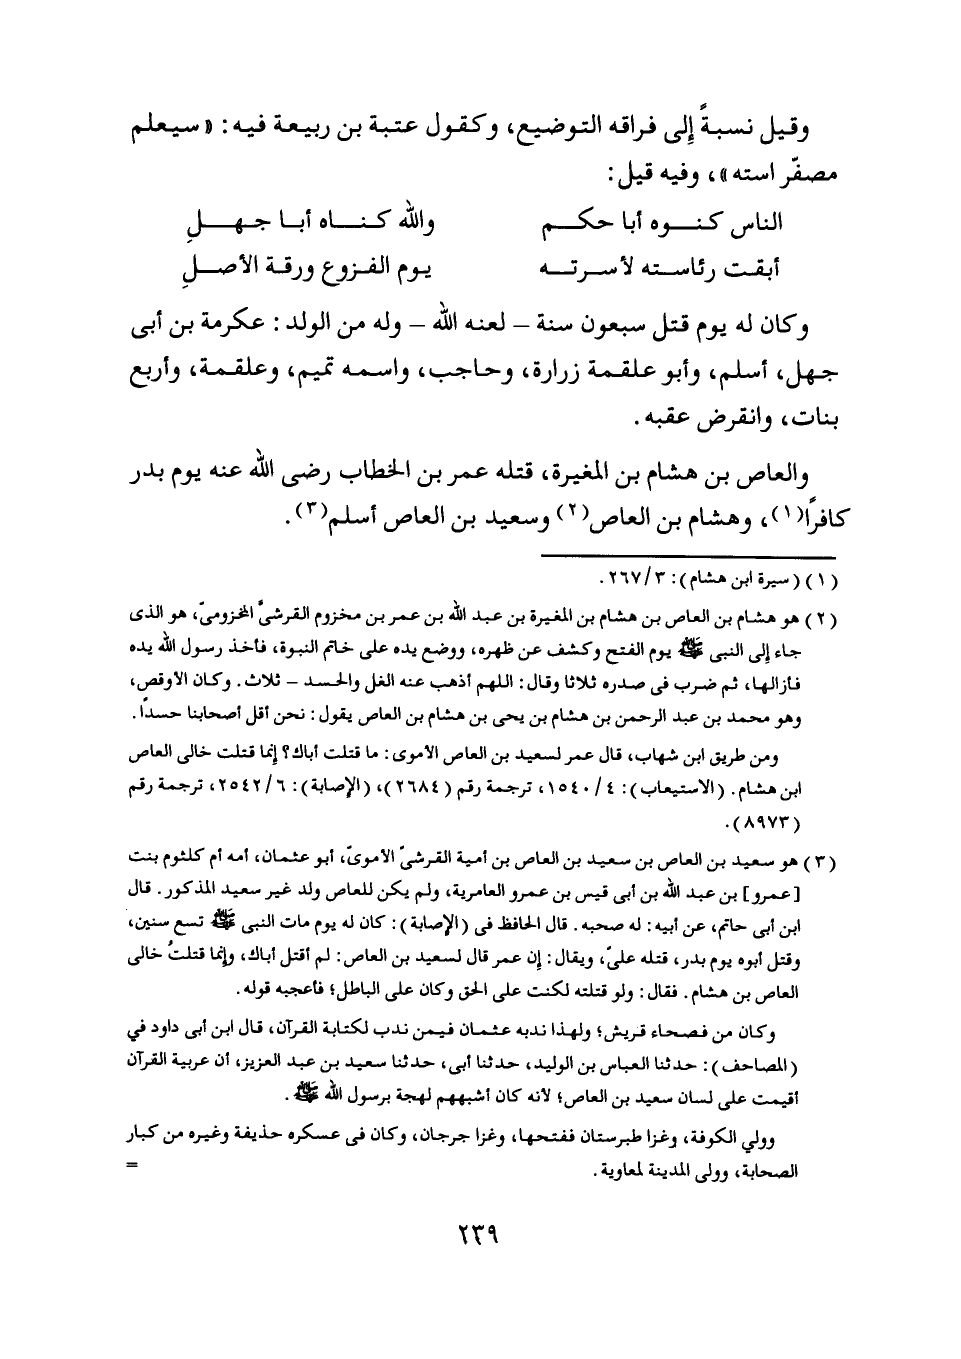 وقيل نسبةً إلى فراقه التوضيع، وكقول عتبة بن ربيعة فيه: «سيعلم
مصفّر استه»، وفيه قيل:
الناس كنــوه أبا حكــم والله كنــاه أبـا جهــلِ
أبقت رئاسته لأسرتــه يوم الفزوع ورقة الأصــلِ
وكان له يوم قتل سبعون سنة – لعنه الله – وله من الولد: عكرمة بن أبى
جهل، أسلم، وأبو علقمة زرارة، وحاجب، واسمه تميم، وعلقمة، وأربع
بنات، وانقرض عقبه.
والعاص بن هشام بن المغيرة، قتله عمر بن الخطاب رضى الله عنه يوم بدر
كافرًا(١)، وهشام بن العاص(٢) وسعيد بن العاص أسلم(٣).
(١) (سيرة ابن هشام): ٣/٢٦٧.
(٢) هو هشام بن العاص بن هشام بن المغيرة بن عبد الله بن عمر بن مخزوم القرشىّ المخزومىّ، هو الذى
جاء إلى النبى ﷺ يوم الفتح وكشف عن ظهره، ووضع يده على خاتم النبوة، فأخذ رسول الله يده
فأزالها، ثم ضرب فى صدره ثلاثا وقال: اللهم أذهب عنه الغل والحسد – ثلاث. وكان الأوقص،
وهو محمد بن عبد الرحمن بن هشام بن يحى بن هشام بن العاص يقول: نحن أقل أصحابنا حسداً.
ومن طريق ابن شهاب، قال عمر لسعيد بن العاص الأموى: ما قتلت أباك؟ إنما قتلت خالى العاص
ابن هشام. (الاستيعاب): ٤/١٥٤٠، ترجمة رقم (٢٦٨٤)، (الإصابة): ٦/٢٥٤٢، ترجمة رقم
(٨٩٧٣).
(٣) هو سعيد بن العاص بن سعيد بن العاص بن أمية القرشىّ الأموىّ، أبو عثمان، أمه أم كلثوم بنت
[عمرو] بن عبد الله بن أبى قيس بن عمرو العامرية، ولم يكن للعاص ولد غير سعيد المذكور. قال
ابن أبى حاتم، عن أبيه: له صحبه. قال الحافظ فى (الإصابة): كان له يوم مات النبى ﷺ تسع سنين،
وقتل أبوه يوم بدر، قتله علىّ، ويقال: إن عمر قال لسعيد بن العاص: لم أقتل أباك، وإنما قتلتُ خالى
العاص بن هشام. فقال: ولو قتلته لكنت على الحق وكان على الباطل؛ فأعجبه قوله.
وكان من فصحاء قريش؛ ولهذا ندبه عثمان فيمن ندب لكتابة القرآن، قال ابن أبى داود في
(المصاحف): حدثنا العباس بن الوليد، حدثنا أبى، حدثنا سعيد بن عبد العزيز، أن عربية القرآن
أقيمت على لسان سعيد بن العاص؛ لأنه كان أشبههم لهجة برسول الله ﷺ.
وولي الكوفة، وغزا طبرستان ففتحها، وغزا جرجان، وكان فى عسكره حذيفة وغيره من كبار
الصحابة، وولى المدينة لمعاوية. =
٢٣٩